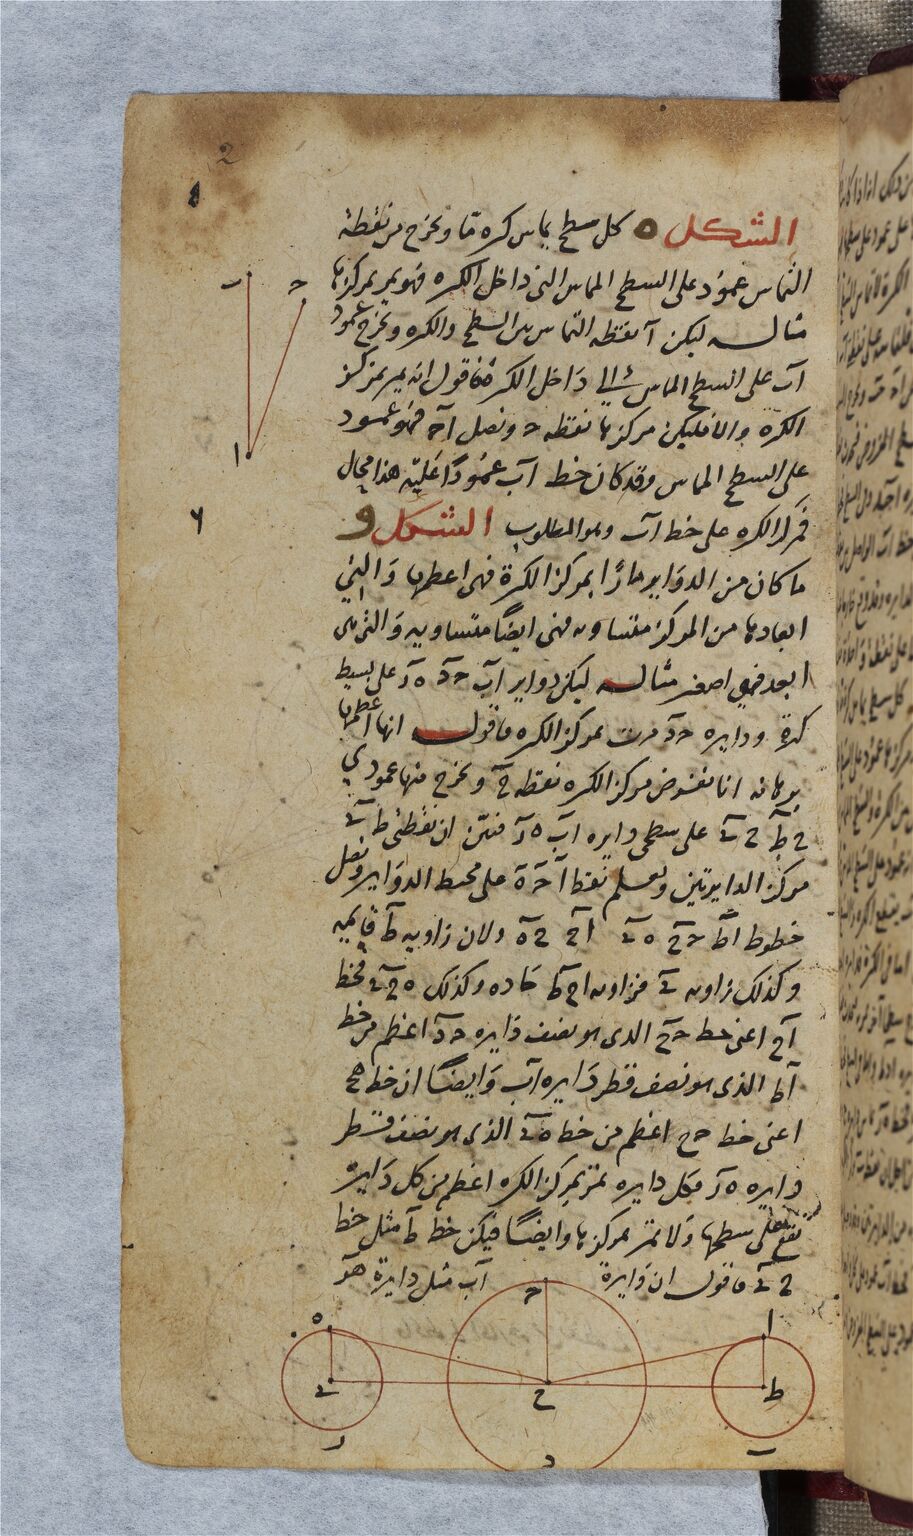 2
الشكل ه كل سطح يماس كرة ما ويخرج من نقطة
التماس عمود على السطح المماس الى داخل الكره فهو يمر بمركزها
مثاله ليكن آ نقطه التماس بين السطح والكره ويخرج عمود
آب على السطح المماس الى داخل الكرة فاقول انه يمر بمركز
الكره والا فليكن مركزها نقطه حـ ونصل آحـ فهو عمود
على السطح المماس وقد كان خط آب عمودًا عليه هذا محال
فمركز الكره على خط آب وهو المطلوب الشكل و
ما كان من الدواير مارًا بمركز الكرة فهى اعظمها والتي
ابعادها من المركز متساويه فهى ايضًا متساويه والتى هى
ابعد فهي اصغر مثاله ليكن دواير آب حـد ه ر على بسيط
كرة ودايره حـد مرت بمركز الكره فاقول انها اعظمها
برهانه انا نفرض مركز الكره نقطه ح ويخرج منها عمودي
ح ط ح ى على سطحى دايره آب ه ر فبين ان نقطتى ط ى
مركز الدايرتين ونعلم نقط آ حـ ه على محيط الدواير ونصل
خطوط اط حـ ح ه ى اح ح ه ولان زاويه ط قايمه
وكذلك زاويه ى فزاويه اح ط حاده وكذلك ه ح ى فخط
اح اعنى خط حـ ح الذى هو نصف دايره حـد اعظم من خط
اط الذى هو نصف قطر دايره آب وايضًا ان خط ه ح
اعنى خط حـ ح اعظم من خط ه ى الذى هو نصف قطر
دايره ه ر فكل دايره تمر بمركز الكره اعظم من كل دايرة
تقع على سطحها ولا تمر بمركزها وايضًا فليكن خط ح ط مثل خط
ح ى فاقول ان دايرة آب مثل دايرة ه ر
ب
حـ
ا
٦
حـ
ا
ه
ط
ح
ى
ر
د
ب